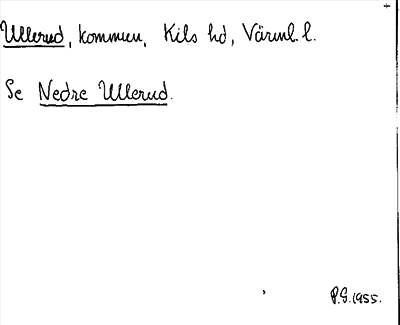 Ullerud, kommun, Kils hd, Värml. l.
Se Nedre Ullerud.
P.G. 1955.